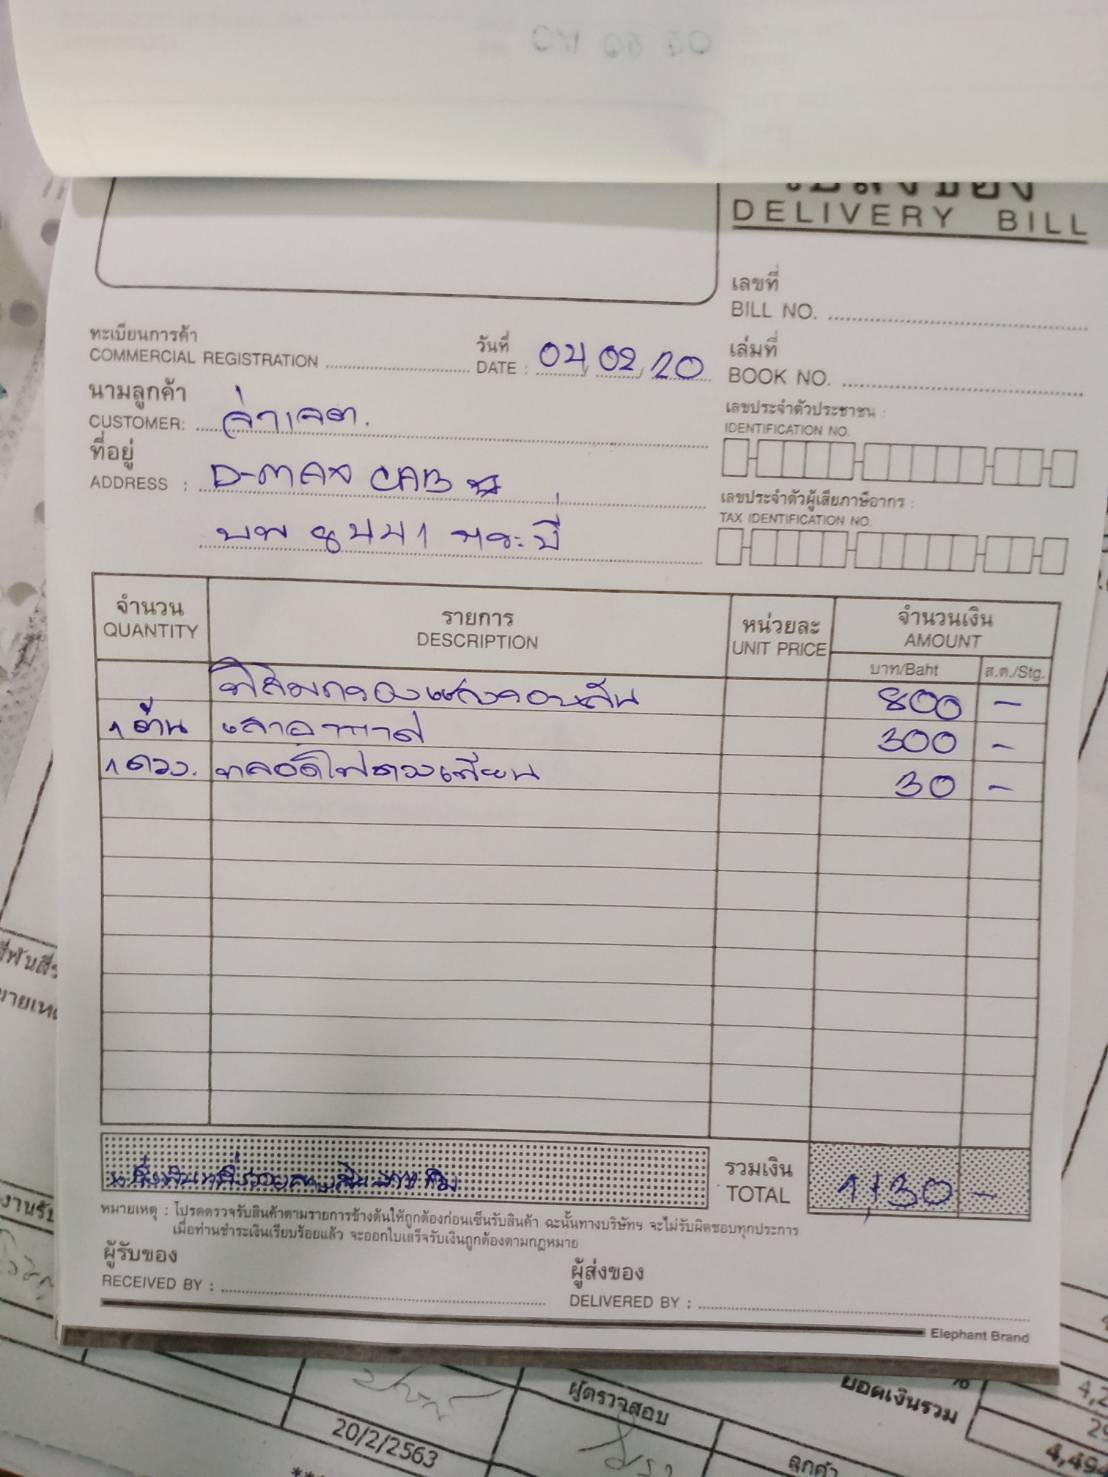 DELIVERY BILL
เลขที่
BILL NO.
ทะเบียนการค้า
COMMERCIAL REGISTRATION
วันที่
DATE : 04, 02, 20
เล่มที่
BOOK NO.
นามลูกค้า
CUSTOMER: จ่าเจต.
เลขประจำตัวประชาชน :
IDENTIFICATION NO.
ที่อยู่
ADDRESS : D-MAX CAB
บพ 8441 กระบี่
เลขประจำตัวผู้เสียภาษีอากร :
TAX IDENTIFICATION NO.
จำนวน รายการ หน่วยละ จำนวนเงิน
QUANTITY DESCRIPTION UNIT PRICE AMOUNT
บาท/Baht ส.ต./Stg.
800 -
1 ต้น เสาอากาศ 300 -
1 ดวง. หลอดไฟดวงเทียน 30 -
รวมเงิน
TOTAL 1,130 -
หมายเหตุ : โปรดตรวจรับสินค้าตามรายการข้างต้นให้ถูกต้องก่อนเซ็นรับสินค้า ฉะนั้นทางบริษัทฯ จะไม่รับผิดชอบทุกประการ
เมื่อท่านชำระเงินเรียบร้อยแล้ว จะออกใบเสร็จรับเงินถูกต้องตามกฎหมาย
ผู้รับของ
RECEIVED BY :
ผู้ส่งของ
DELIVERED BY :
Elephant Brand
ผู้ตรวจสอบ
ยอดเงินรวม
20/2/2563
ลูกค้า